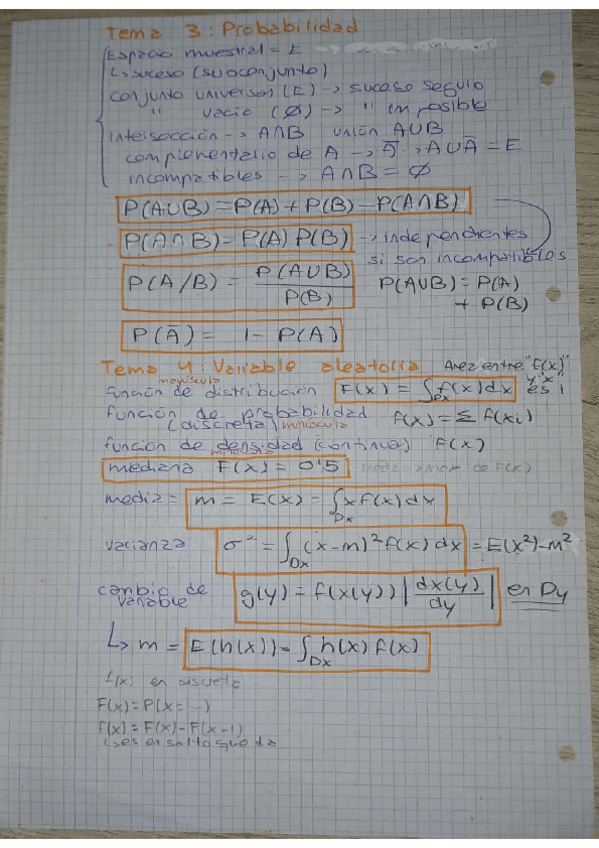 Tema 3: Probabilidad
Espacio muestral = E
↳ suceso (subconjunto)
conjunto universos (E) → suceso seguro
" vacio (Ø) → " imposible
intersección → A∩B unión A∪B
complementario de A → Ā → A∪Ā = E
incompatibles → A∩B = Ø
P(A∪B) = P(A) + P(B) - P(A∩B)
P(A∩B) = P(A) P(B) → independientes
si son incompatibles
P(A/B) = P(A∪B) / P(B) P(A∪B) = P(A) + P(B)
P(Ā) = 1 - P(A)
Tema 4: Variable aleatoria Área entre "f(x)"
mayúscula y x
función de distribución F(x) = ∫Dx f(x) dx es 1
función de probabilidad f(x) = Σ f(xi)
(discreta) minúscula
función de densidad (continua) f(x)
minúscula
mediana F(x) = 0'5 moda → max de f(x)
media = m = E(x) = ∫Dx x f(x) dx
varianza σ² = ∫Dx (x-m)² f(x) dx = E(x²)-m²
cambio de variable g(y) = f(x(y)) |dx(y)/dy| en Dy
↳ m = E(h(x)) = ∫Dx h(x) f(x)
f(x) en discreta
F(x) = P(x = -)
f(x) = F(x) - F(x-1)
↳ es el salto que da